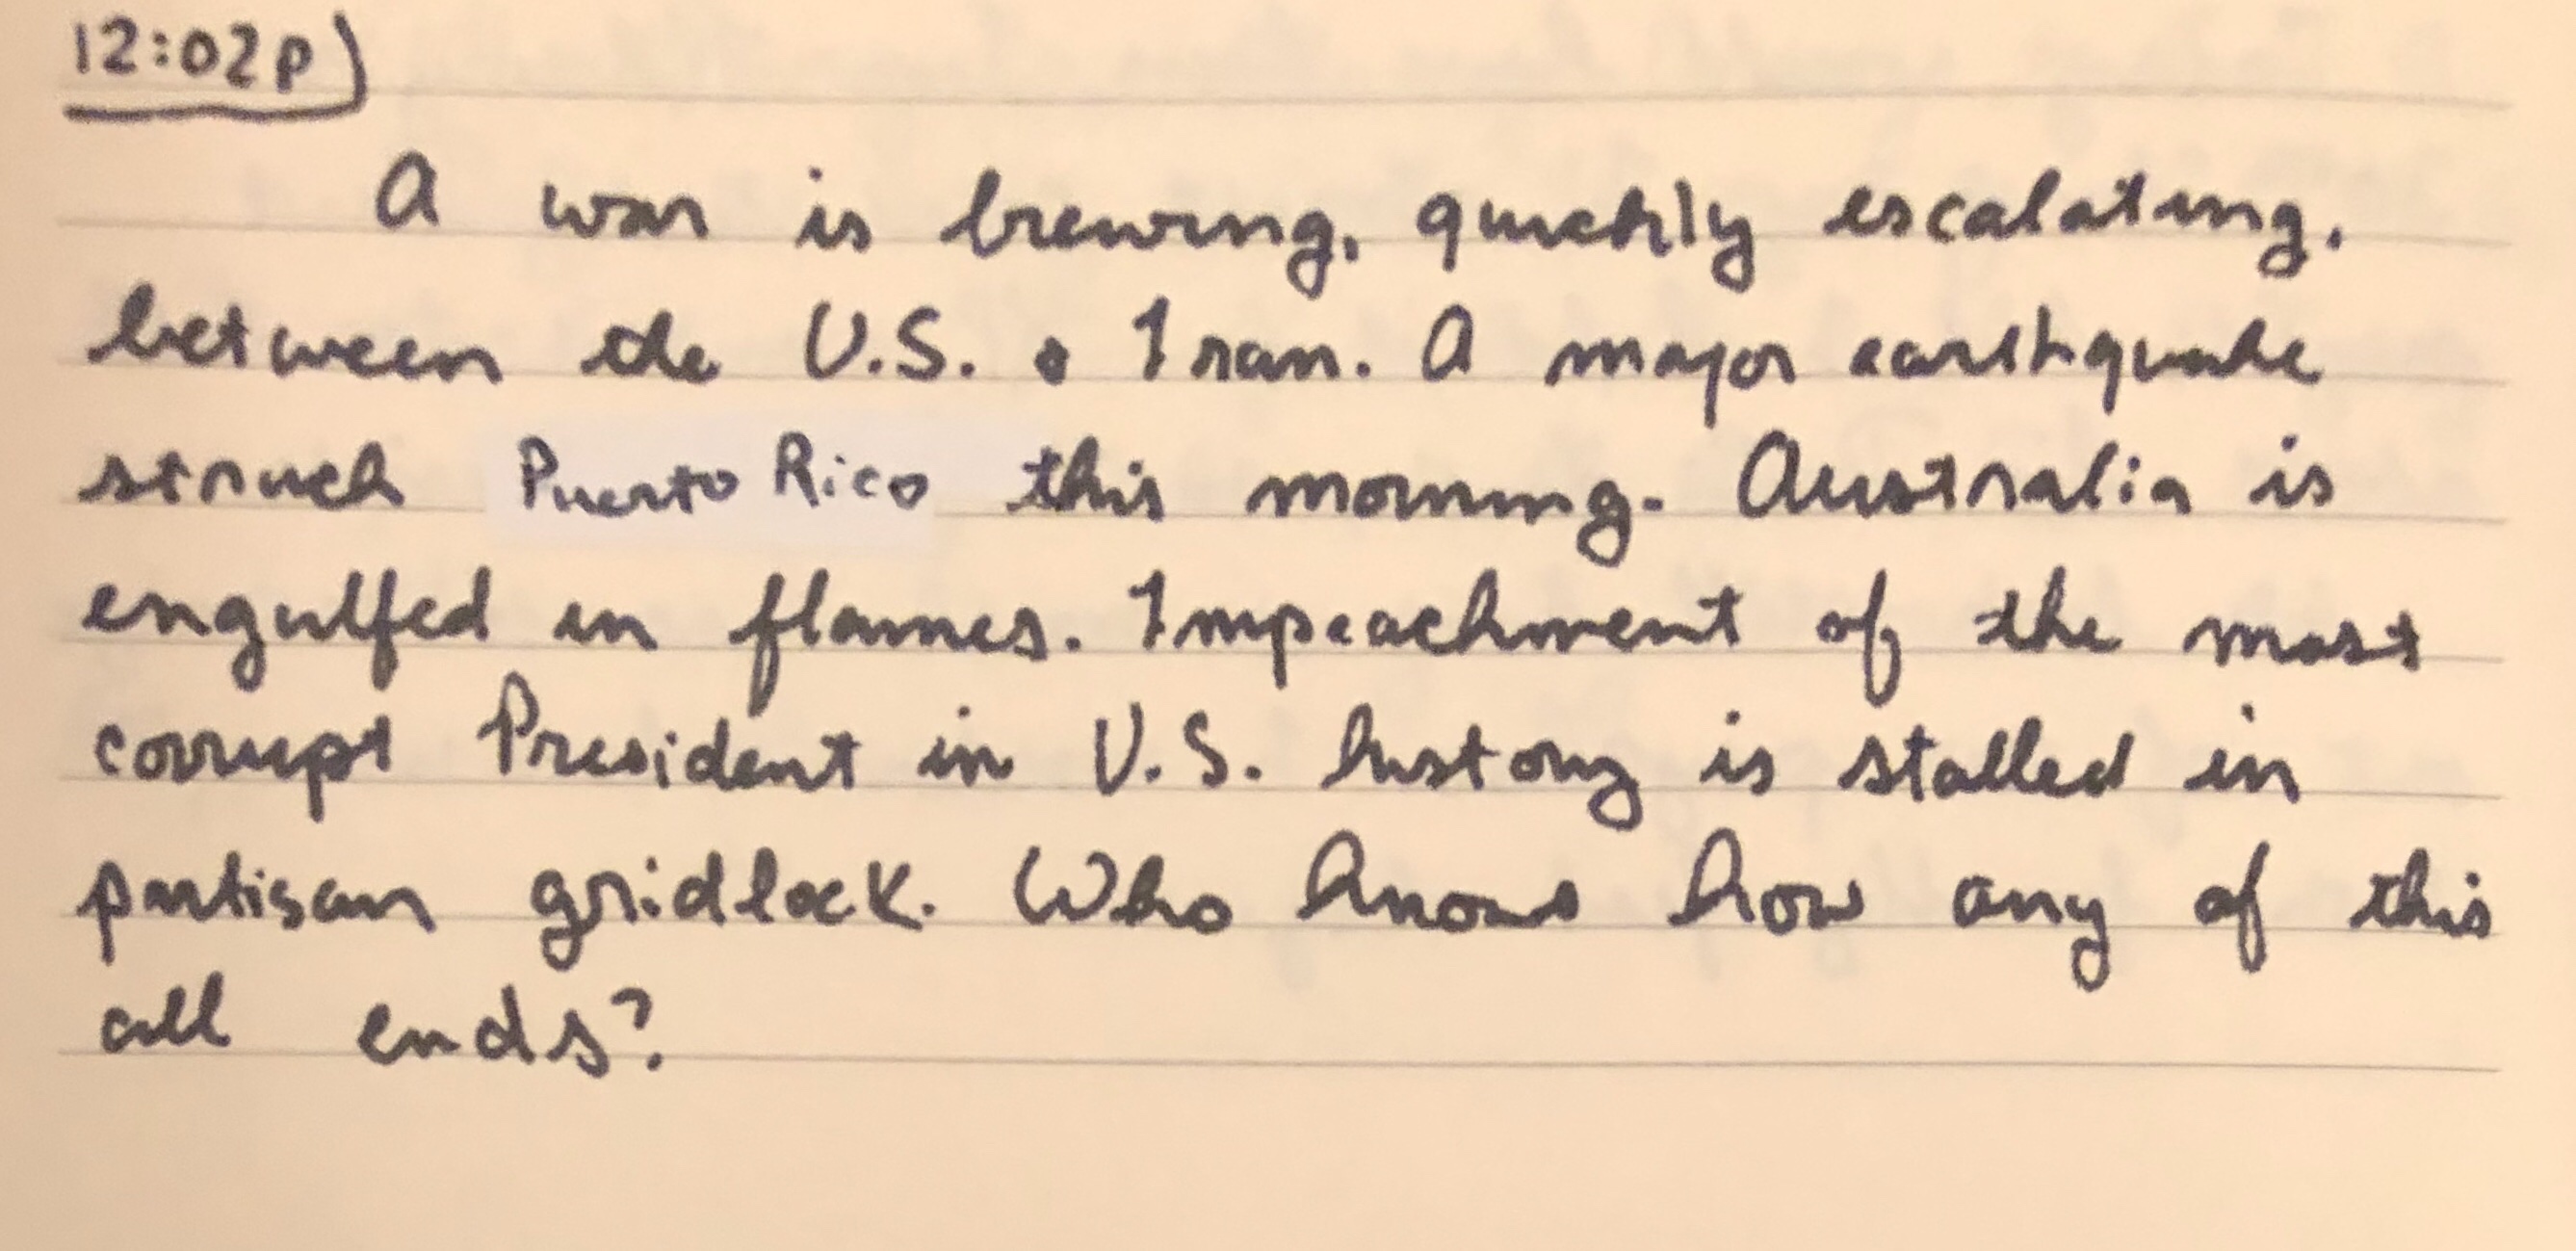 12:02p)
A war is brewing, quickly escalating,
between the U.S. & Iran. A major earthquake
struck Puerto Rico this morning. Australia is
engulfed in flames. Impeachment of the most
corrupt President in U.S. history is stalled in
partisan gridlock. Who knows how any of this
all ends?